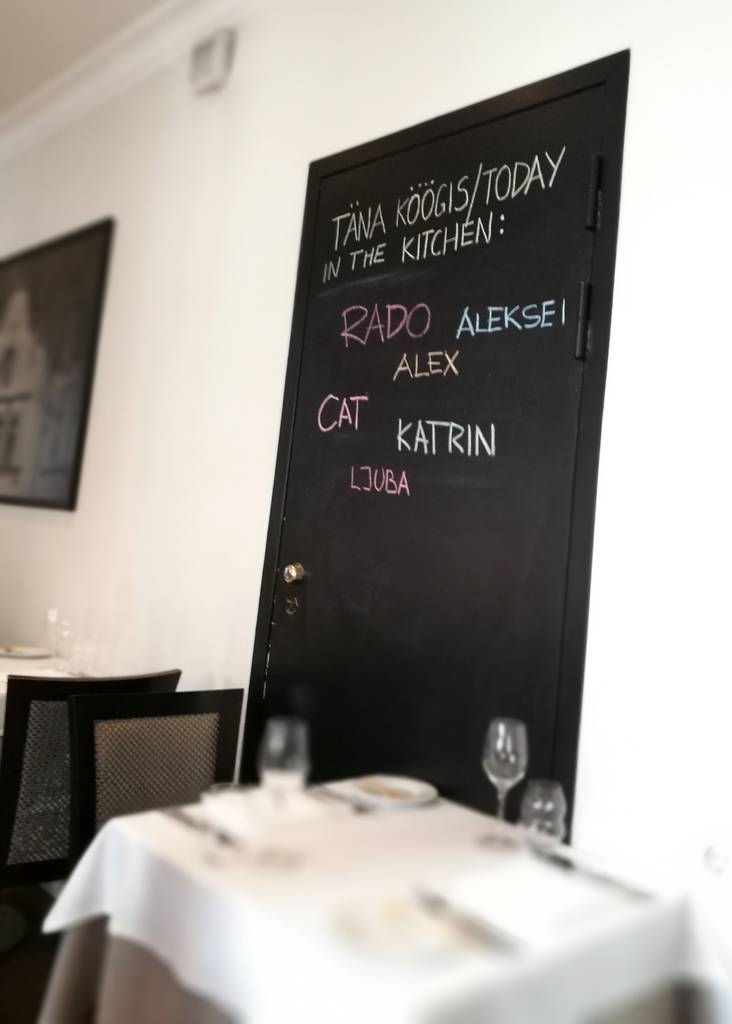 TÄNA KÖÖGIS/TODAY
IN THE KITCHEN:
RADO ALEKSEI
ALEX
CAT
KATRIN
LJUBA